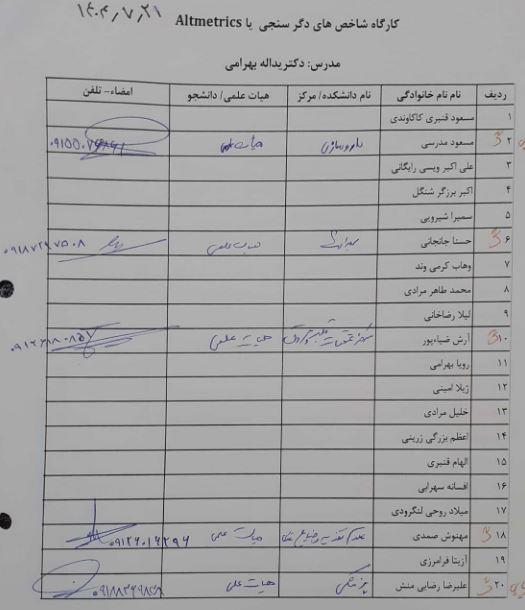 ۱۴۰۴/۷/۲۱
کارگاه شاخص های دگر سنجی یا Altmetrics
مدرس: دکتریداله بهرامی
ردیف نام نام خانوادگی نام دانشکده/ مرکز هیات علمی/ دانشجو امضاء- تلفن
۱ مسعود قنبری کاکاوندی
۲ مسعود مدرسی داروسازی هیأت علمی
۳ علی اکبر ویسی رایگانی
۴ اکبر برزگر شنگل
۵ سمیرا شیرویی
۶ حسنا جانجانی بهداشت هیات علمی
۷ وهاب کرمی وند
۸ محمد طاهر مرادی
۹ لیلا رضاخانی
۱۰ آرش ضیاءپور هیات علمی
۱۱ رویا بهرامی
۱۲ ژیلا امینی
۱۳ خلیل مرادی
۱۴ اعظم بزرگی زرینی
۱۵ الهام قنبری
۱۶ افسانه سهرابی
۱۷ میلاد روحی لنگرودی
۱۸ مهنوش صمدی هیات علمی
۱۹ آزیتا فرامرزی
۲۰ علیرضا رضایی منش پزشکی هیات علمی